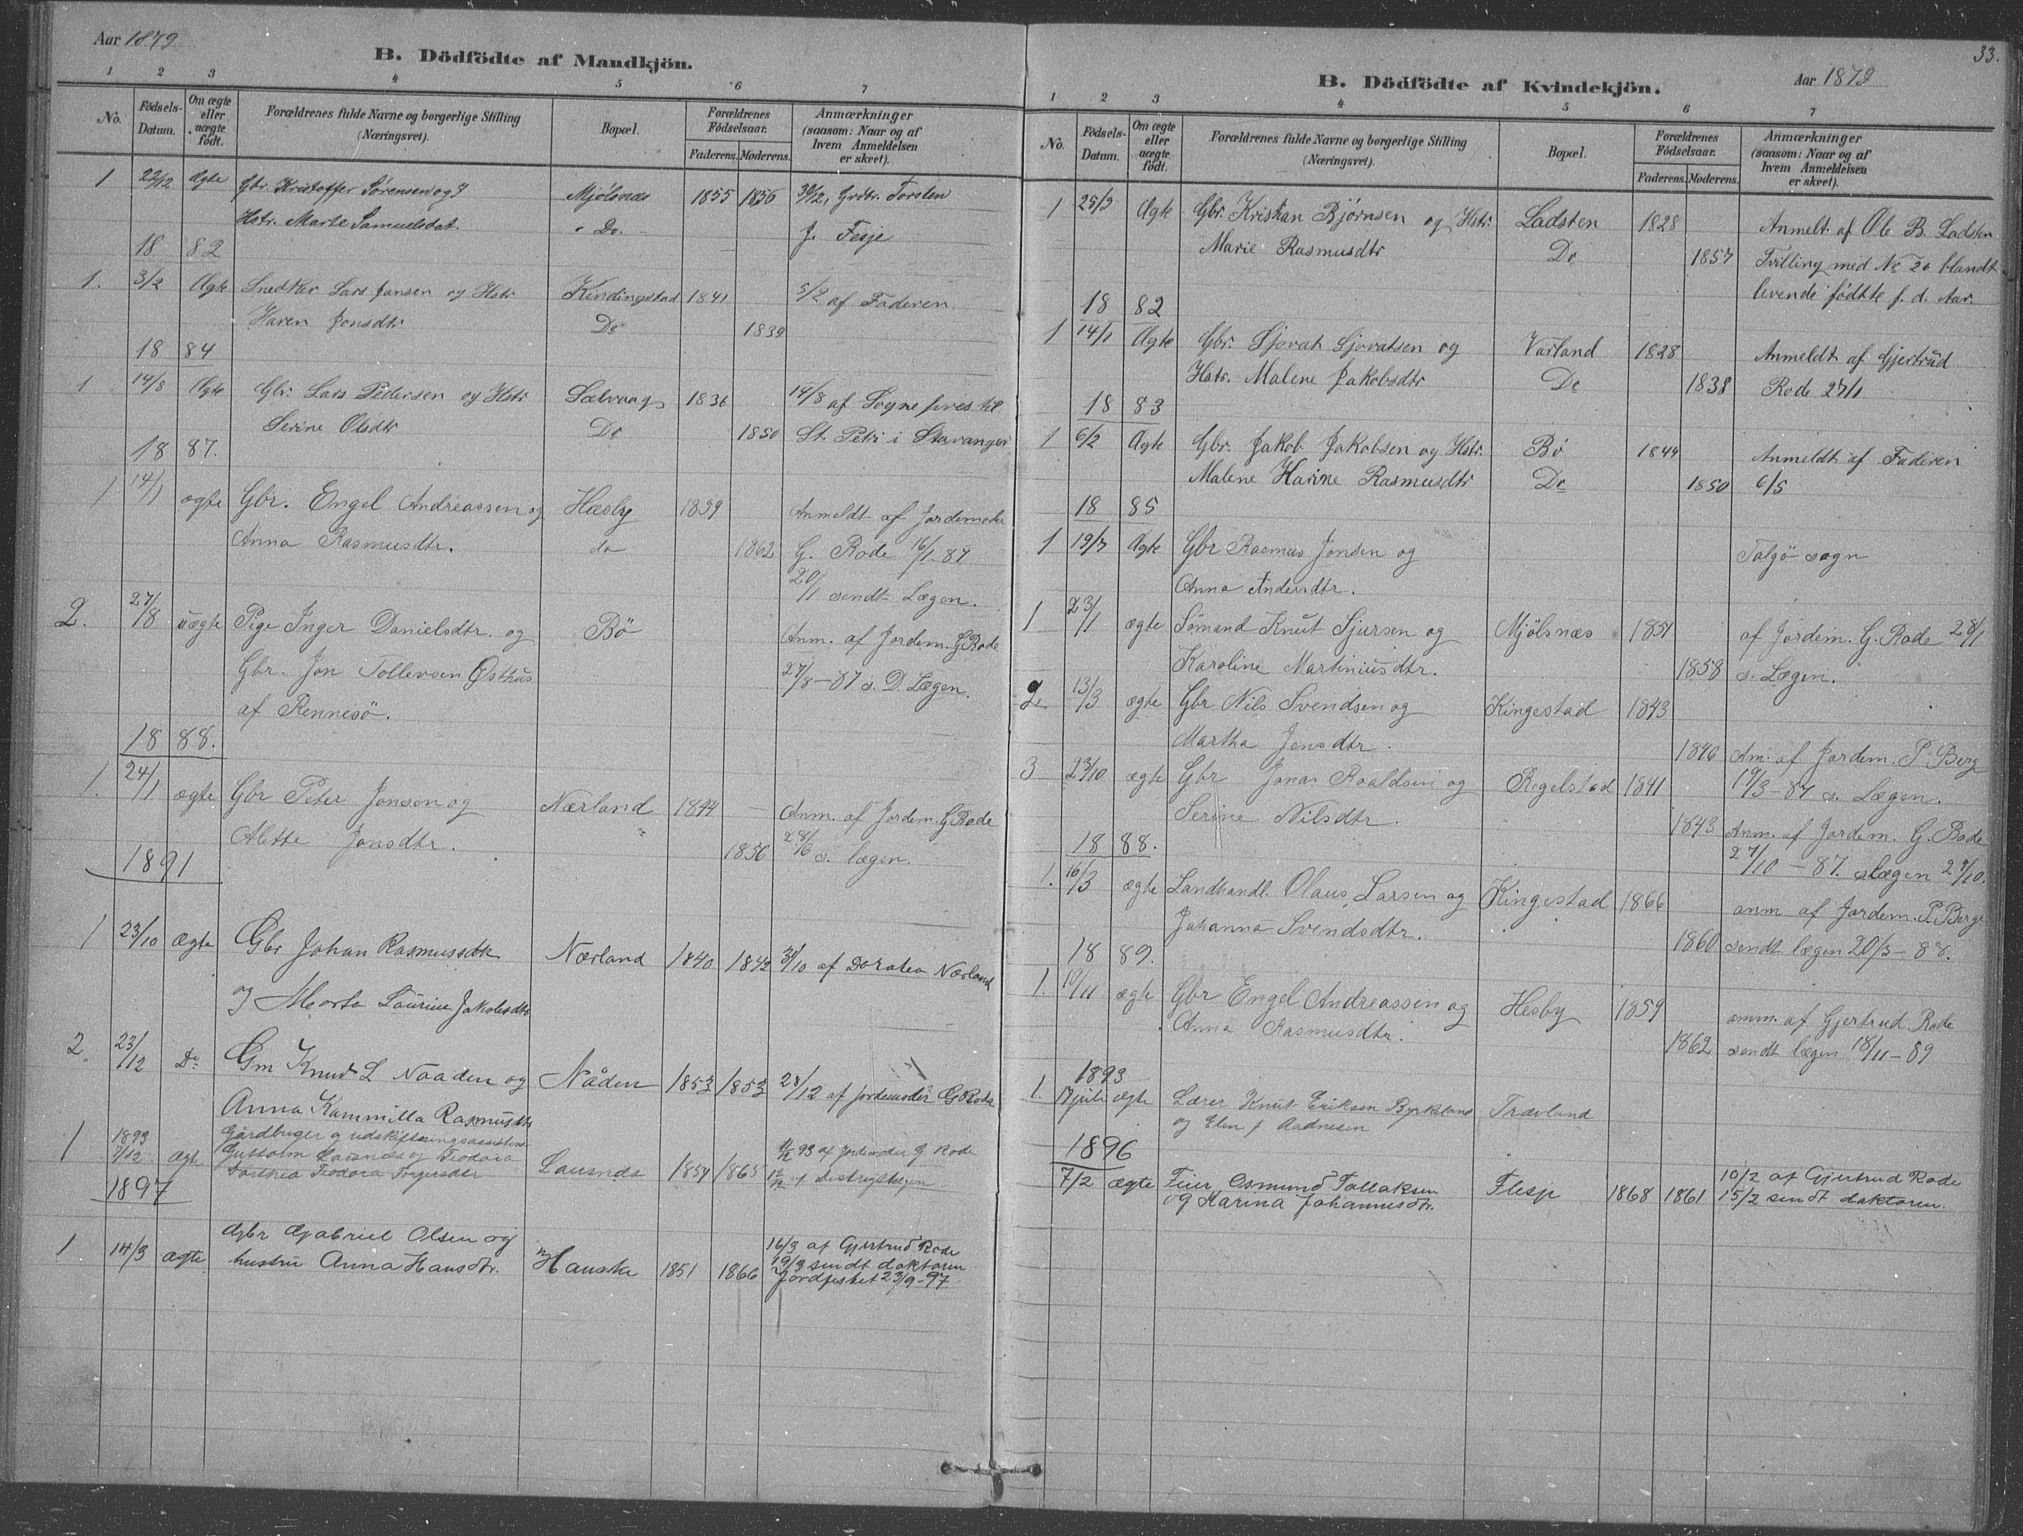 Aar 1879
B. Dödfödte af Mandkjön.
1 2 3 4 5 6 7
No. Födsels-Datum. Om ægte eller uægte födt. Forældrenes fulde Navne og borgerlige Stilling (Næringsvei). Bopæl. Forældrenes Födselsaar. Faderens. Moderens. Anmærkninger (saasom: Naar og af hvem Anmeldelsen er skeet).
1 22/12 Ægte Gbr. Kristoffer Sørensen og Mjølsnæs 1855 1856 30/12, Grdbr. Torsten
Hstr. Marte Samuelsdat. Do. J. Fesje
18 82
1. 3/2 Ægte Snedker Lars Jansen og Hstr Kindingstad 1841 5/2 af Faderen
Karen Jonsdtr Do 1839
18 84
1 14/8 Ægte Gbr. Lars Pedersen og Hstr Sælvaag 1836 14/8 af Sogneprest til
Serine Olsdtr Do 1850 St. Petri i Stavanger
18 87.
1 14/1 ægte Gbr. Engel Andreassen og Hæsby 1859 Anmeldt af Jordemoder
Anna Rasmusdtr. do 1862 G. Rode 16/1. 87
20/1 sendt Lægen.
2. 27/8 uægte Pige Inger Danielsdtr. og Bö Anm. af Jordem. G Rode
Gbr. Jon Tollevsen Østhus 27/8 – 87 s. D. Lægen.
af Rennesö.
18 88.
1. 24/1 ægte Gbr Peter Jonsen og Nærland 1844 Anm. af Jordem. G Rode
Alette Jonsdtr. 1856 28/6 s. lægen.
1891
1 23/10 Ægte Gbr Johan Rasmussen Nærland 1840 1842 31/10 af Doratea Nærland
og Marta Laurine Jakobsdtr
2 23/12 Do Gm Knud L Naaden og Nåden 1853 1853 28/12 af jordemoder G Rode
Anna Kammilla Rasmusdtr
1893 Gårdbruger og udskiftningsassistent
1 7/12 ægte Gutholm Lausnæs og Teodora Lausnæs 1854 1865 93 af Jordemoder G Rode
Dorthea Teodora Torgersdtr
1897
Gbr Gabriel Olsen og 16/3 af Gjertrud Rode
1 14/3 ægte hustru Anna Hansdtr. Hauske 1851 1866 19/3 sendt doktoren
Jordfestet 23/9-97
33.
B. Dödfödte af Kvindekjön. Aar 1879
1 2 3 4 5 6 7
No. Födsels-Datum. Om ægte eller uægte födt. Forældrenes fulde Navne og borgerlige Stilling (Næringsvei). Bopæl. Forældrenes Födselsaar. Faderens. Moderens. Anmærkninger (saasom: Naar og af hvem Anmeldelsen er skeet).
1 25/3 Ægte Gbr. Kristian Bjørnsen og Hstr. Ladsten 1828 Anmelt af Ole B. Ladsten
Marie Rasmusdtr Do 1857 Tvilling med No 20 blandt
levende fødte f. d. Aar.
18 82
1 14/1 Ægte Gbr. Sjovat Sjovatsen og Varland 1828 Anmeldt af Gjertrud
Hstr. Malene Jakobsdtr Do 1838 Rode 27/1
18 83
1 6/2 Ægte Gbr. Jakob Jakobsen og Hstr. Bø 1844 Anmeldt af Faderen
Malene Karine Rasmusdtr Do 1850 6/5
18 85
1 19/7 Ægte Gbr Rasmus Jonsen og Talgö sogn
Anna Andersdtr.
1 23/1 ægte Sömand Knut Sjursen og Mjölsnæs 1851 af Jordem. G. Rode 28/1
Karoline Martiniusdtr. 1858 s. Lægen.
2. 13/3 ægte Gbr Nils Svendsen og Kingestad 1843
Martha Jensdtr. 1846 Am. af Jordem. P. Berg
3 23/10 ægte Gbr Jonas Roaldsen og Rigelstad 1841 19/3 – 87. s. Lægen.
Serine Nilsdtr. 1843 Anm. af Jordem. G. Rode
18 88. 27/10 – 87. s lægen 29/10.
1. 16/3 ægte Landhandl. Olaus Larsen og Kingestad 1866 anm af Jordem. P. Berge
Johanna Svendsdtr. 1860 sendt lægen 20/3 – 88.
18 89.
1. 10/11 ægte Gbr Engel Andreassen og Hesby 1859 anm. af Gjertrud Rode
Anna Rasmusdtr. 1862 sendt lægen 18/11 – 89
1893
1. 17 juli ægte Lærer Knut Eriksen Byrkeland Trævland
og Elen J Aadnesen
1896
7/2 ægte Feier Osmund Tollaksen Flesje 1868 1861 10/2 af Gjertrud Rode
og Karina Johannesdtr. 15/2 sendt doktoren.